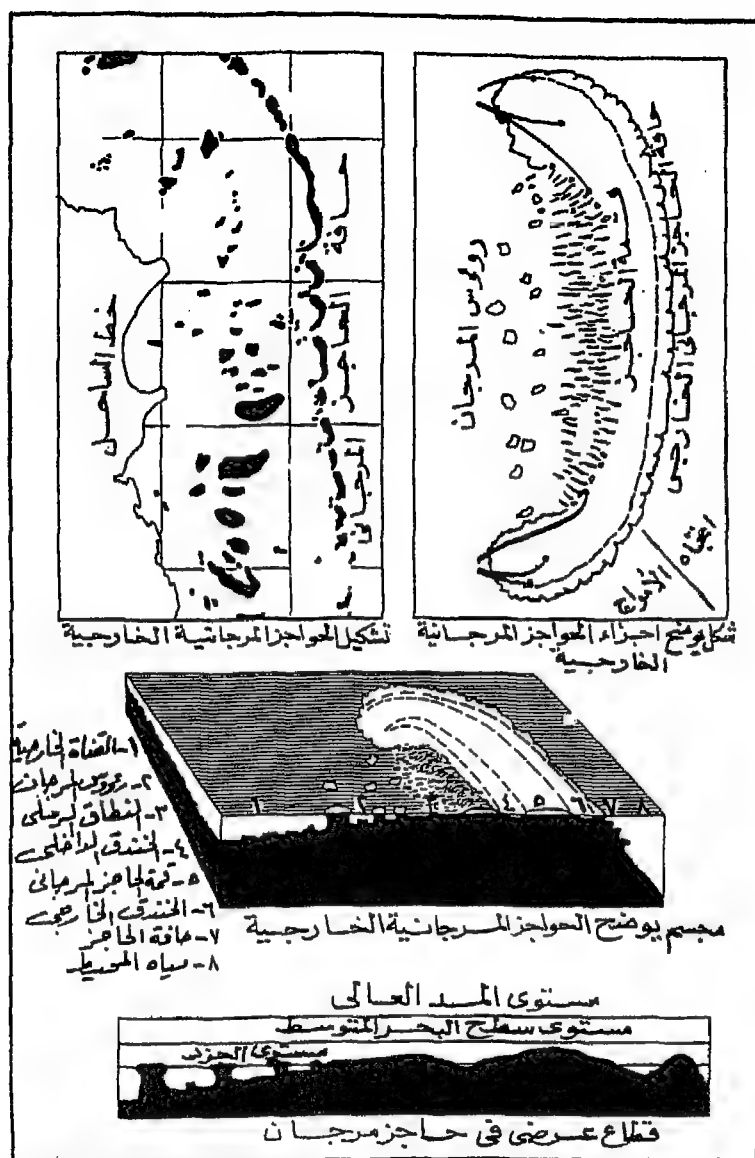 حافة الحاجز المرجاني الخارجي
قمة الحاجز
رؤوس المرجان
اتجاه الأمواج
شكل يوضح اجزاء الحواجز المرجانية
الخارجية
حافة الحاجز المرجاني
خط الساحل
تشكيل الحواجز المرجانية الخارجية
١- القناة الخارجية
٢- رؤوس المرجان
٣- النطاق الرملى
٤- الخندق الداخلى
٥- قمة الحاجز المرجانى
٦- الخندق الخارجى
٧- حافة الحاجز
٨- مياه المحيط
٤ ٥ ٦
مجسم يوضح الحواجز المرجانية الخارجية
مستوى المد العالى
مستوى سطح البحر المتوسط
مستوى الجزر
قطاع عرضى فى حاجز مرجان